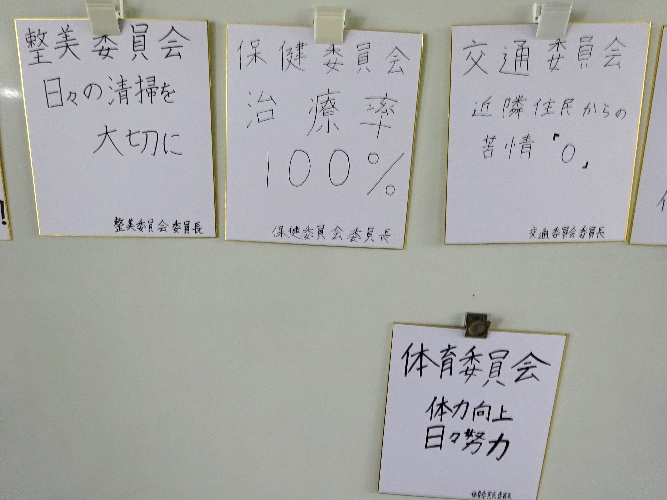 整美委員会
日々の清掃を
大切に
整美委員会委員長
保健委員会
治療率
100%
保健委員会委員長
交通委員会
近隣住民からの
苦情「0」
交通委員会委員長
体育委員会
体力向上
日々努力
体育委員会委員長
!